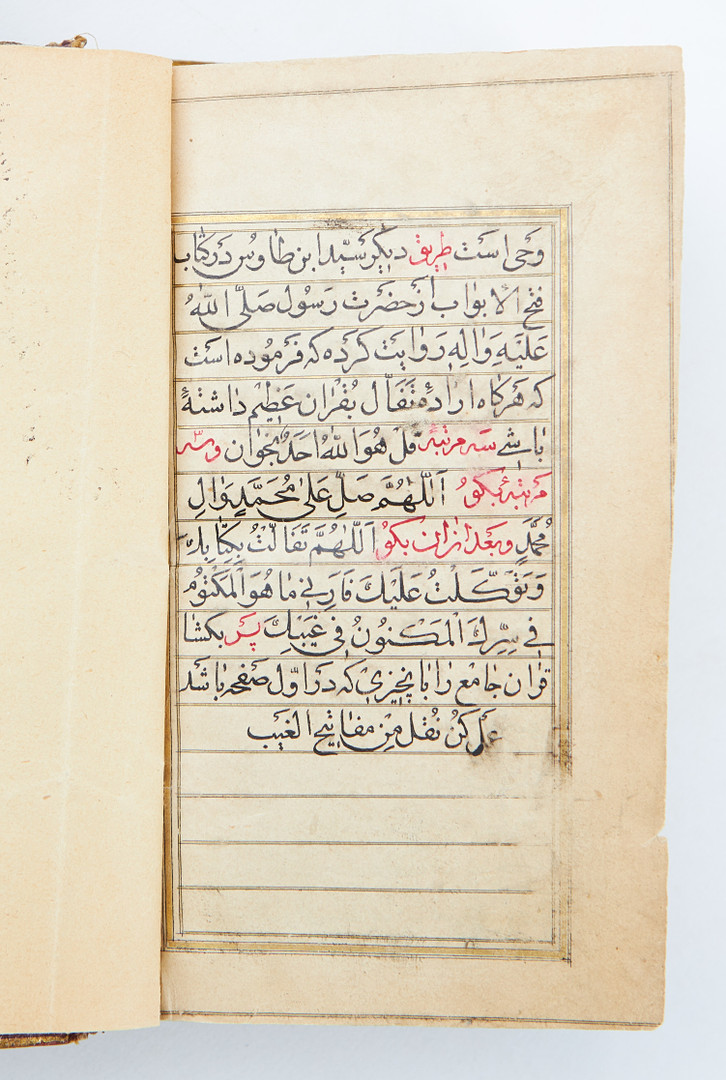 وحی است طریق دیگر سیّد ابن طاوس در کتاب
فتح الابواب از حضرت رسول صلّی اللّٰه
علیه واله روایت کرده که فرموده است
که هرکاه ارادهٔ تفأّل بقران عظیم داشته
باشی سه مرتبه قل هو اللّٰه احد بخوان وسه
مرتبه بکو اَللّٰهُمَّ صَلِّ عَلیٰ مُحَمَّدٍ وَاٰلِ
مُحَمَّدٍ وبعد ازان بکو اَللّٰهُمَّ تَفَأَّلْتُ بِکِتَابِكَ
وَتَوَکَّلْتُ عَلَیْكَ فَاَرِنِی مَا هُوَ الْمَکْتُومُ
فِی سِرِّكَ الْمَکْنُونُ فِی غَیْبِكَ پس بکشا
قران جامع را باانچیزی که در اوّل صفحه باشد
عمل کن نقل من مفاتیح الغیب